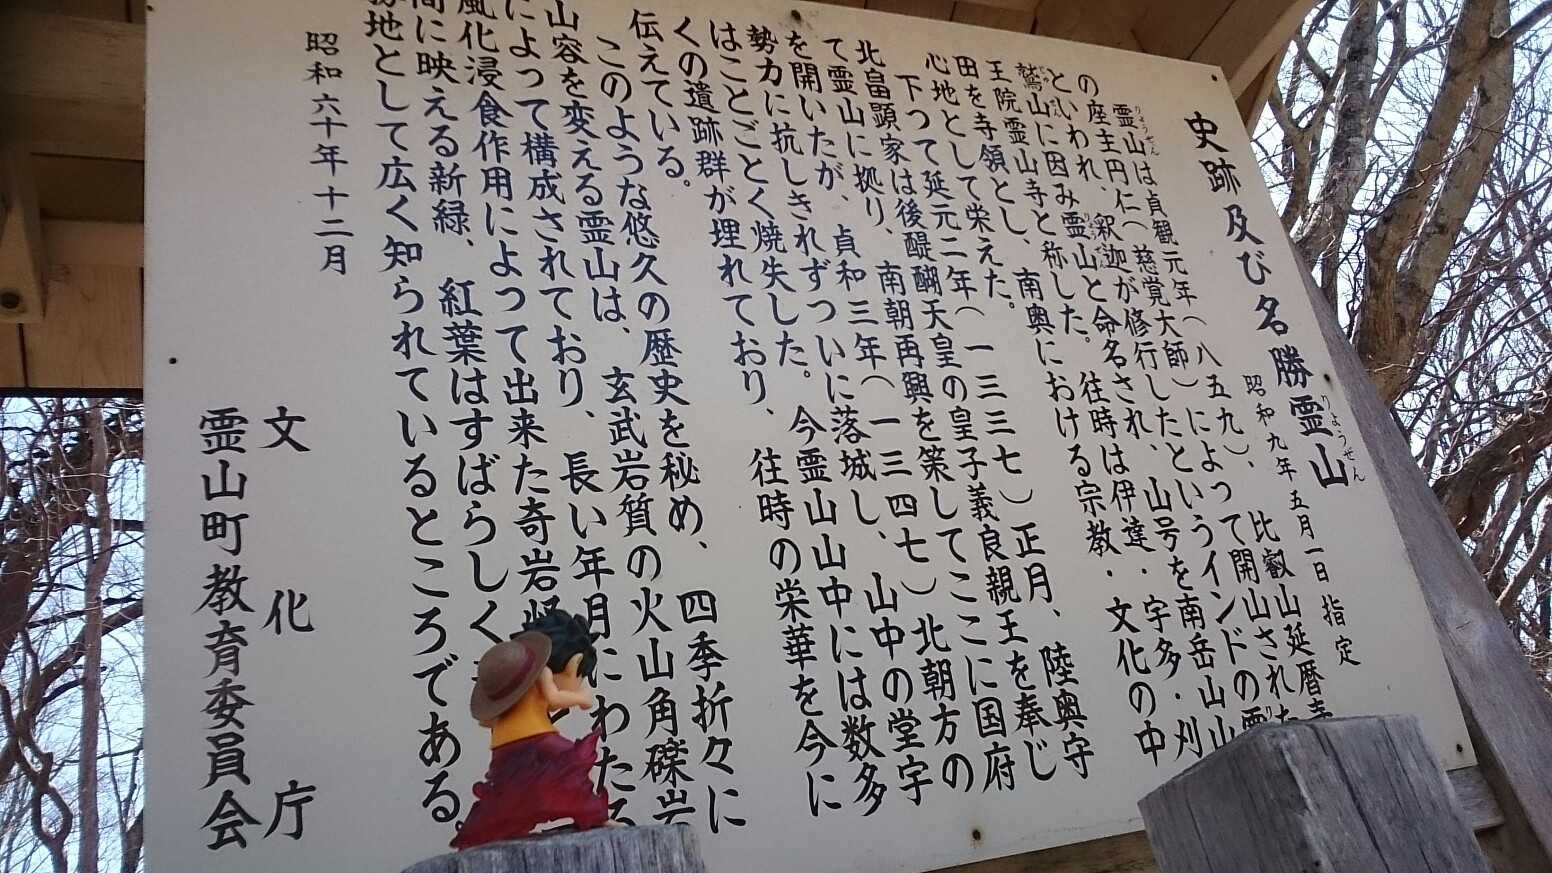 史跡及び名勝霊山
りょうぜん
昭和九年五月一日指定
霊山は貞観元年（八五九）、比叡山延暦寺
りょうぜん
の座主円仁（慈覚大師）によって開山された
といわれ、釈迦が修行したというインドの霊
鷲山に因み霊山と命名され、山号を南岳山山
王院霊山寺と称した。往時は伊達・宇多・刈
田を寺領とし、南奥における宗教・文化の中
心地として栄えた。
下つて延元二年（一三三七）正月、陸奥守
北畠顕家は後醍醐天皇の皇子義良親王を奉じ
て霊山に拠り、南朝再興を策してここに国府
を開いたが、貞和三年（一三四七）北朝方の
勢力に抗しきれずついに落城し、山中の堂宇
はことごとく焼失した。今霊山山中には数多
くの遺跡群が埋れており、往時の栄華を今に
伝えている。
このような悠久の歴史を秘め、四季折々に
山容を変える霊山は、玄武岩質の火山角礫岩
によって構成されており、長い年月にわたる
風化浸食作用によって出来た奇岩
間に映える新緑、紅葉はすばらしく
勝地として広く知られているところである。
昭和六十年十二月
文化庁
霊山町教育委員会